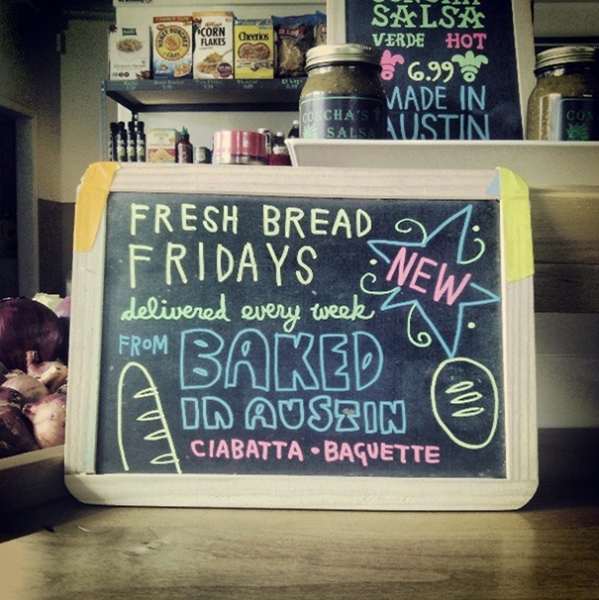 HONEY BUNCHES
CORN
FLAKES
Cheerios
SALSA
VERDE HOT
6.99
MADE IN
AUSTIN
CONCHA'S
SALSA
CON
FRESH BREAD
FRIDAYS
NEW
delivered every week
FROM BAKED
IN AUSTIN
CIABATTA • BAGUETTE